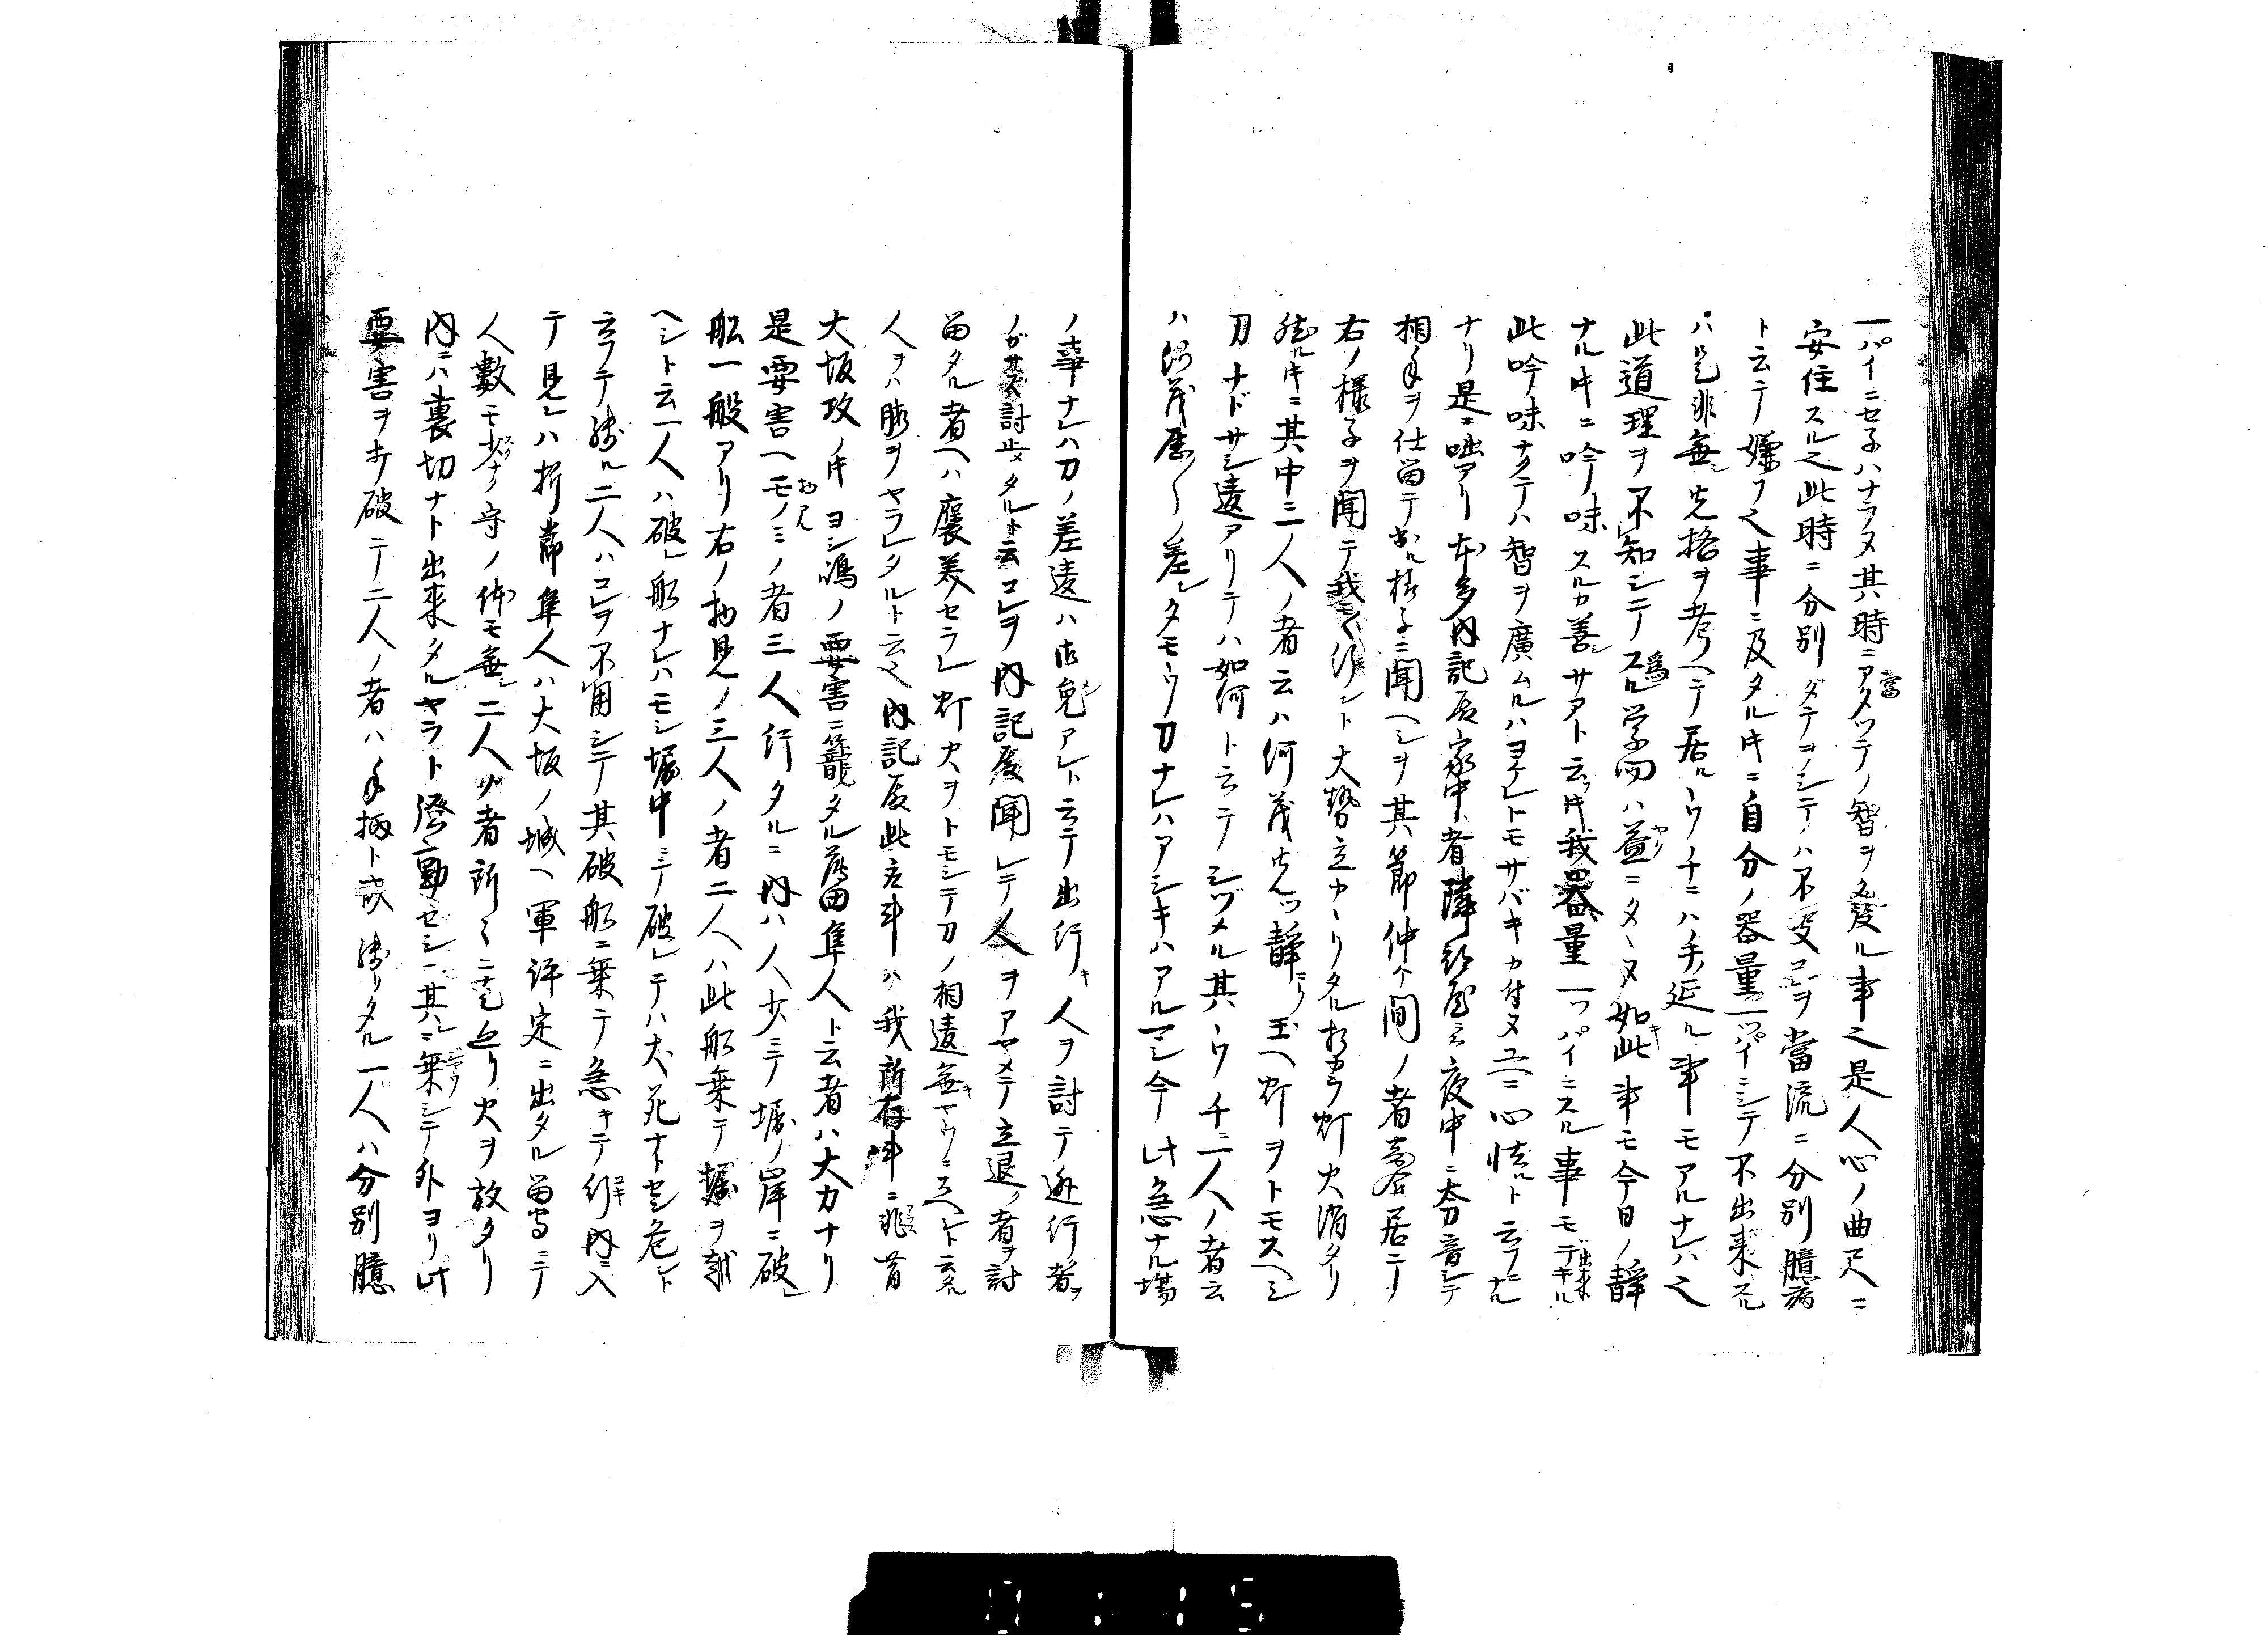 一パイニセ子ハナラヌ其時ニアタツテノ智ヲ発ル事也是人心ノ曲尺ニ
安住スル也此時ニ分別ダテヲシテハ不受コレヲ當流ニ分別臆病
ト云テ嫌フ也事ニ及タル时ニ自分ノ器量一ツパイニシテ不出来スル
ハ是非無シ先格ヲ考ヘテ居ルウチニハ手延ル事モアルナレハ也
此道理ヲ不知シテスル学問ハ益ニタヽヌ如此事モ今日ノ静
ナル时ニ吟味スルカ善シサアト云フ时我器量一ツパイニスル事モデキル
此吟味ナクテハ智ヲ廣ムルハヨケレトモサバキカ付ヌユヘニ心怯ルト云フニナル
ナリ是ニ咄アリ本多内記辰家中者隣部屋ニテ夜中ニ太刀音シテ
相手ヲ仕留テ出ル様子ニ聞ヘシヲ其節仲ケ間ノ者寄合居テ
右ノ様子ヲ聞テ我モ〳〵行ント大勢立カヽリタル拍子ニ灯火消タリ
然ル时ニ其中ニ一人ノ者云ハ何茂先ツ静リ玉ヘ灯ヲトモスヘシ
刀ナドサシ違アリテハ如何ト云テシヅメル其ウチニ一人ノ者云
ハ何茂歴〳〵ノ差シタモウ刀ナレハアシキハアルマシ今此急ナル場
ノ事ナレハ刀ノ差違ハ御免アレト云テ出行キ人ヲ討テ逃行者ヲ
ノガサズ討止メタルト云コレヲ内記殿聞レテ人ヲアヤメテ立退ク者ヲ討
留タル者ヘハ褒美セラレ灯火ヲトモシテ刀ノ相違無キヤウニスヘシト云タル
人ヲハ暇ヲヤラレタルト云也内記辰此意味ハ我所存ニ非ス昔
大坂攻ノ时ヨシ嶋ノ要害ニ籠タル薄田隼人ト云者ハ大力ナリ
是要害ヘモノミノ者三人行タルニ内ハ人少ニテ堀ノ岸ニ破レ
船一般アリ右ノ物見ノ三人ノ者二人ハ此船乗テ堀ヲ越
ヘシト云一人ハ破レ船ナレハモシ堀中ニテ破レテハ犬死ナト也危シト
云フテ残ル二人ハコレヲ不用シテ其破船ニ乗テ急キテ行内ニ入
テ見レハ折節隼人ハ大坂ノ城ヘ軍評定ニ出タル留守ニテ
人數モ少ナク守ノ体モ無シ二人ノ者所〳〵ニ走廻リ火ヲ放タリ
内ニハ裏切ナト出来タルヤラト騒動セシ其ニ乗シテ外ヨリ此
要害ヲ打破テ二人ノ者ハ手柄ト成残リタル一人ハ分別臆